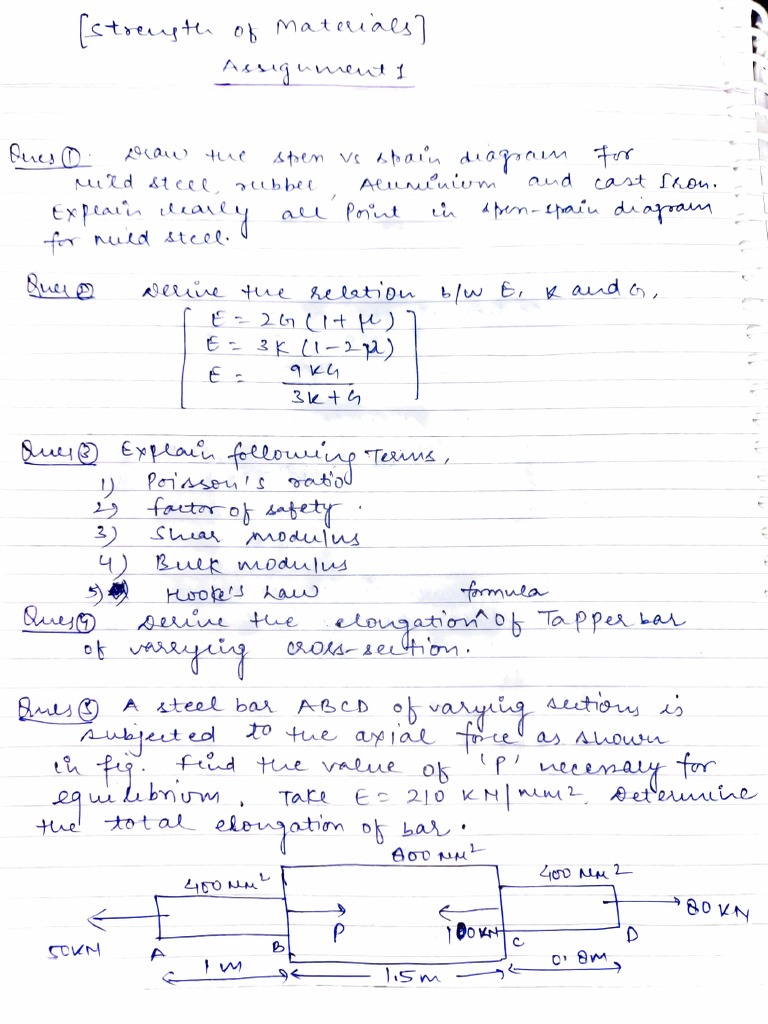 [Strength of Materials]
Assignment 1
Ques ①. Draw the stress vs strain diagram for
mild steel, rubber, Aluminium and cast Iron.
Explain clearly all Point in stress-strain diagram
for mild steel.
Ques ② Derive the relation b/w E, K and G,
E = 2G (1+μ)
E = 3K (1-2μ)
E = 9KG
3K+G
Ques ③ Explain following Terms,
1) Poisson's ratio
2) factor of safety.
3) Shear modulus
4) Bulk modulus
5) Hooke's Law
formula
Ques ④ Derive the elongation^ of Tapper bar
of varrying cross-section.
Ques ⑤ A steel bar ABCD of varying sections is
subjected to the axial force as shown
in fig. find the value of 'P' necessary for
equilibrium. Take E = 210 KN/mm2. Determine
the total elongation of bar.
800 mm2
400 mm2
400 mm2
50KN
P
100KN
80 KN
A
B
C
D
1m
1.5m
0.8m